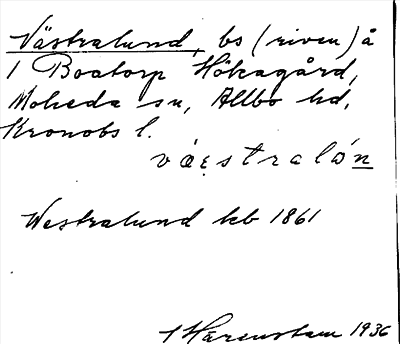 Västralund, bs (riven) å
1 Boatorp Hökagård,
Moheda sn, Allbo hd,
Kronobs l.
væstralón
Westralund kb 1861
1936